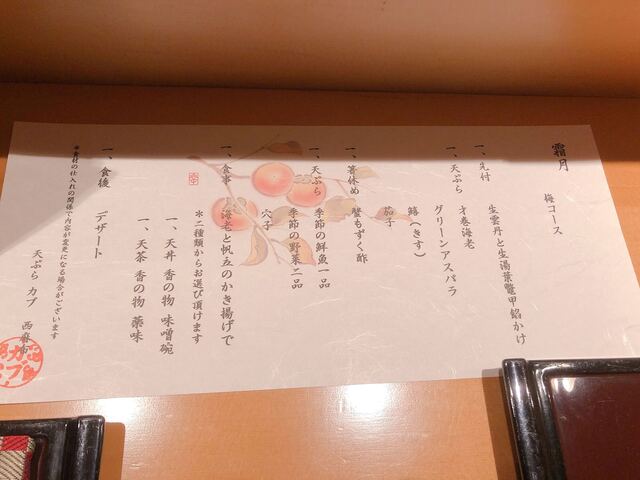 霜月
梅コース
一、先付 生雲丹と生湯葉鼈甲餡かけ
一、天ぷら 才巻海老
グリーンアスパラ
鱚(きす)
茄子
一、箸休め 蟹もずく酢
一、天ぷら 季節の鮮魚一品
季節の野菜二品
穴子
一、食事 海老と帆立のかき揚げで
*二種類からお選び頂けます
一、天丼 香の物 味噌碗
一、天茶 香の物 薬味
一、食後 デザート
*食材の仕入れの関係で内容が変更になる場合がございます
天ぷら カブ 西麻布